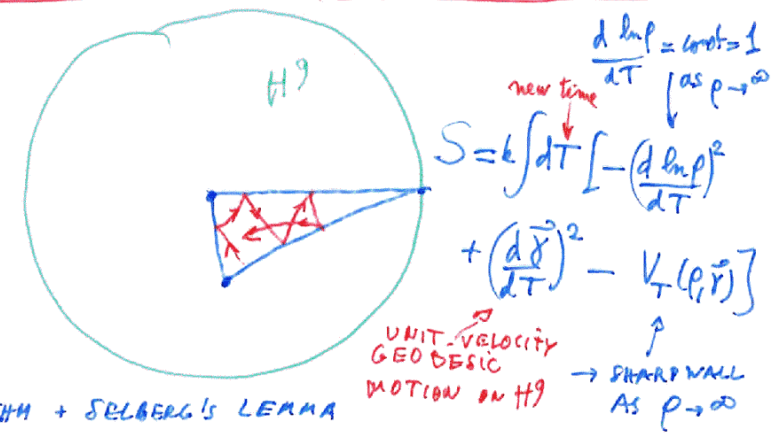 H⁹
d lnρ/dT = const = 1
as ρ→∞
new time
S = k∫dT[-(d lnρ/dT)²
+ (dγ⃗/dT)² - V_T(ρ,γ⃗)]
UNIT-VELOCITY
GEODESIC
MOTION ON H9
→ SHARP WALL
AS ρ→∞
+ SELBERG'S LEMMA